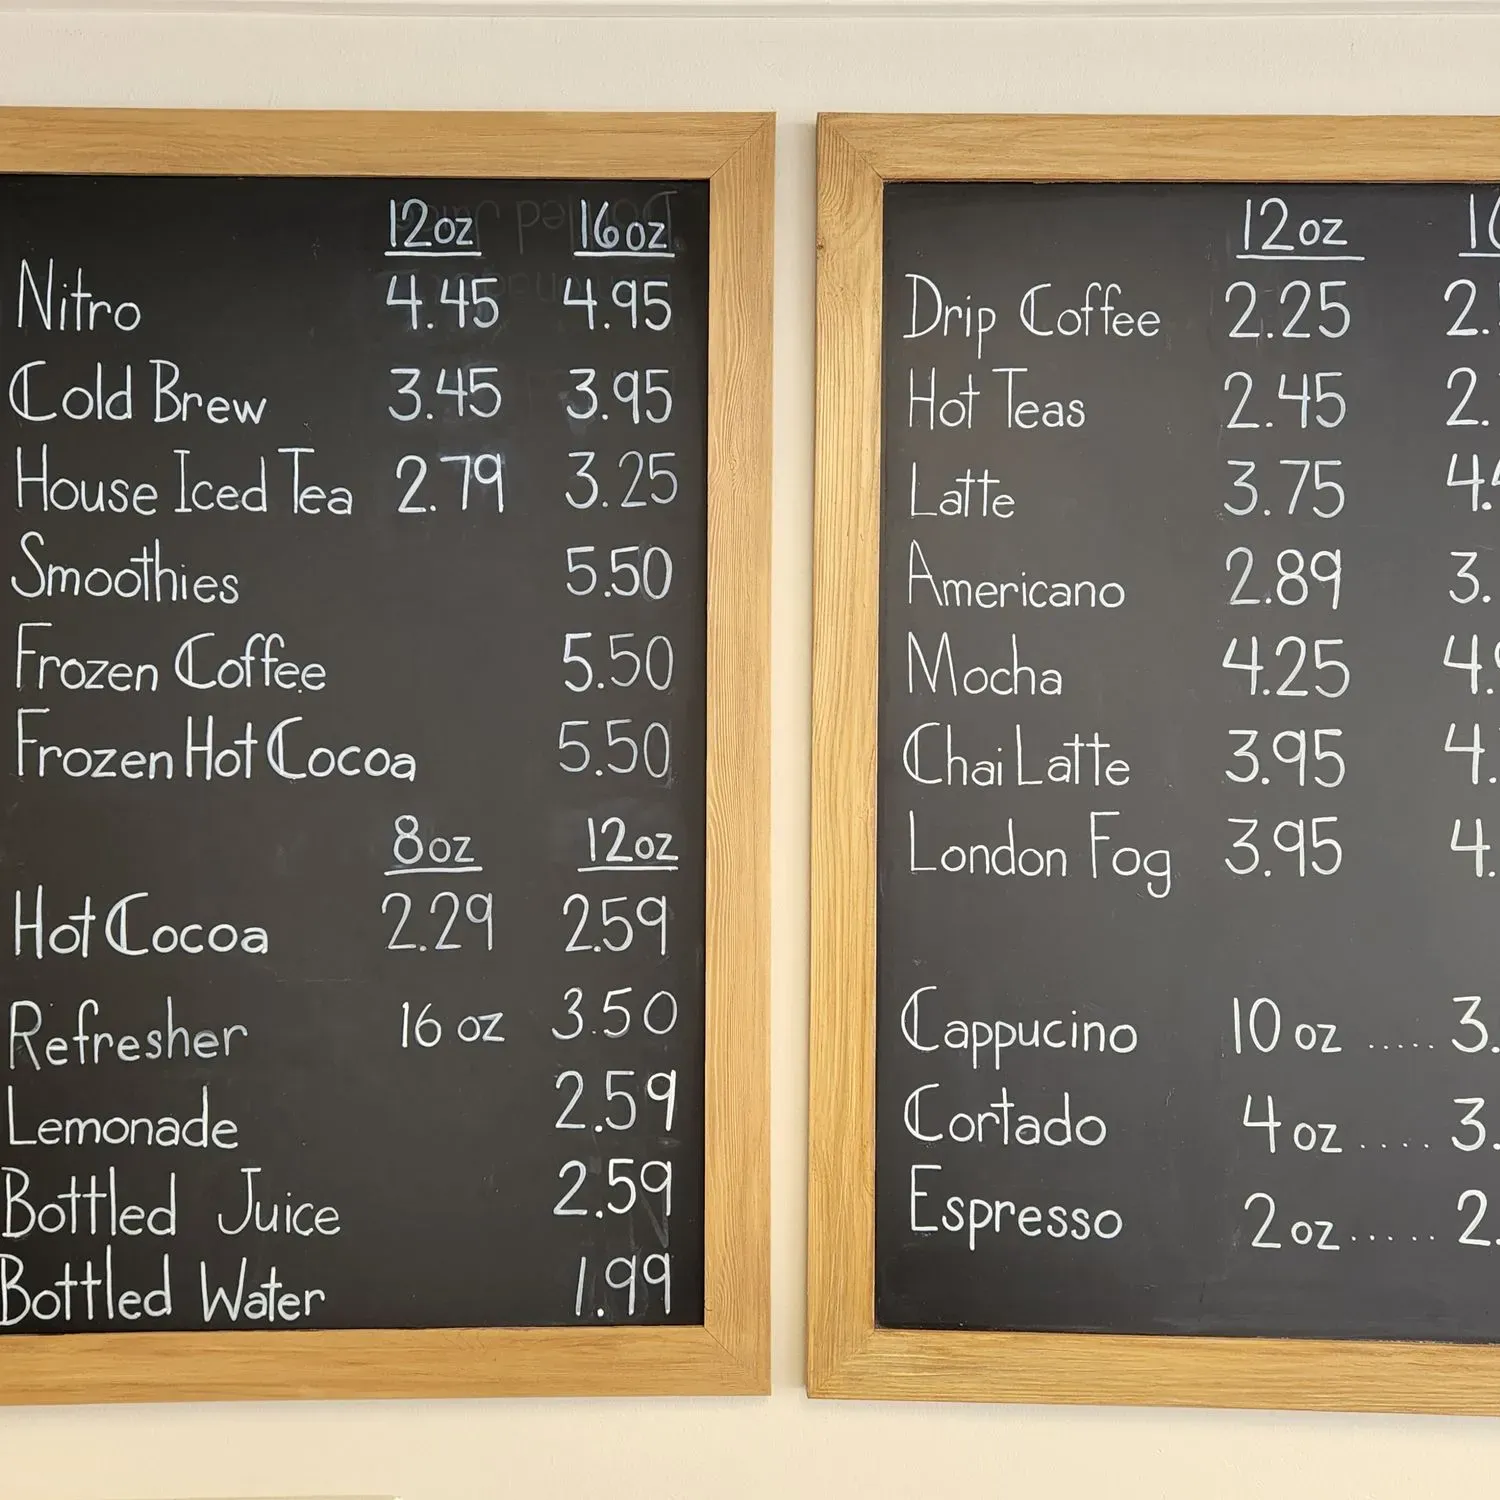 12oz 16oz
Nitro 4.45 4.95
Cold Brew 3.45 3.95
House Iced Tea 2.79 3.25
Smoothies 5.50
Frozen Coffee 5.50
Frozen Hot Cocoa 5.50
8oz 12oz
Hot Cocoa 2.29 2.59
Refresher 16 oz 3.50
Lemonade 2.59
Bottled Juice 2.59
Bottled Water 1.99
12oz
Drip Coffee 2.25
Hot Teas 2.45
Latte 3.75
Americano 2.89
Mocha 4.25
Chai Latte 3.95
London Fog 3.95
Cappucino 10 oz ..... 3.
Cortado 4 oz ..... 3.
Espresso 2 oz ...... 2.